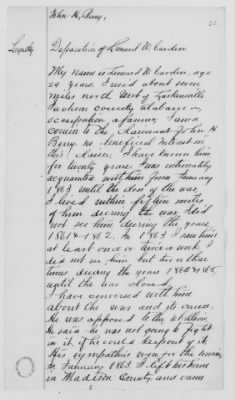 John H. Berry,
Loyalty
Deposition of Leonard W. Carden
My name is Leonard W. Carden, age
29 years. I reside about seven
miles north West of Larkinsville
Jackson county, Alabama
occupation a farmer. I am a
cousin to the Claimant John H
Berry no beneficial interest in
this Claim. I have known him
for twenty years. Was intimately
acquainted with him from January
1863 until the close of the war
I lived within fifteen miles
of him during the war. I did
not see him during the years
1861 & 1862. In 1863 I saw him
at least once or twice a week, I
did not see him but two or three
times during the years 1864 & 1865
until the war closed,
I have conversed with him
about the war and its cause,
He was opposed to the rebellion,
He said he was not going to fight
in it, if he could keep out of it.
His sympathies were for the union,
in January 1863 I left his home
in Madison County, and came